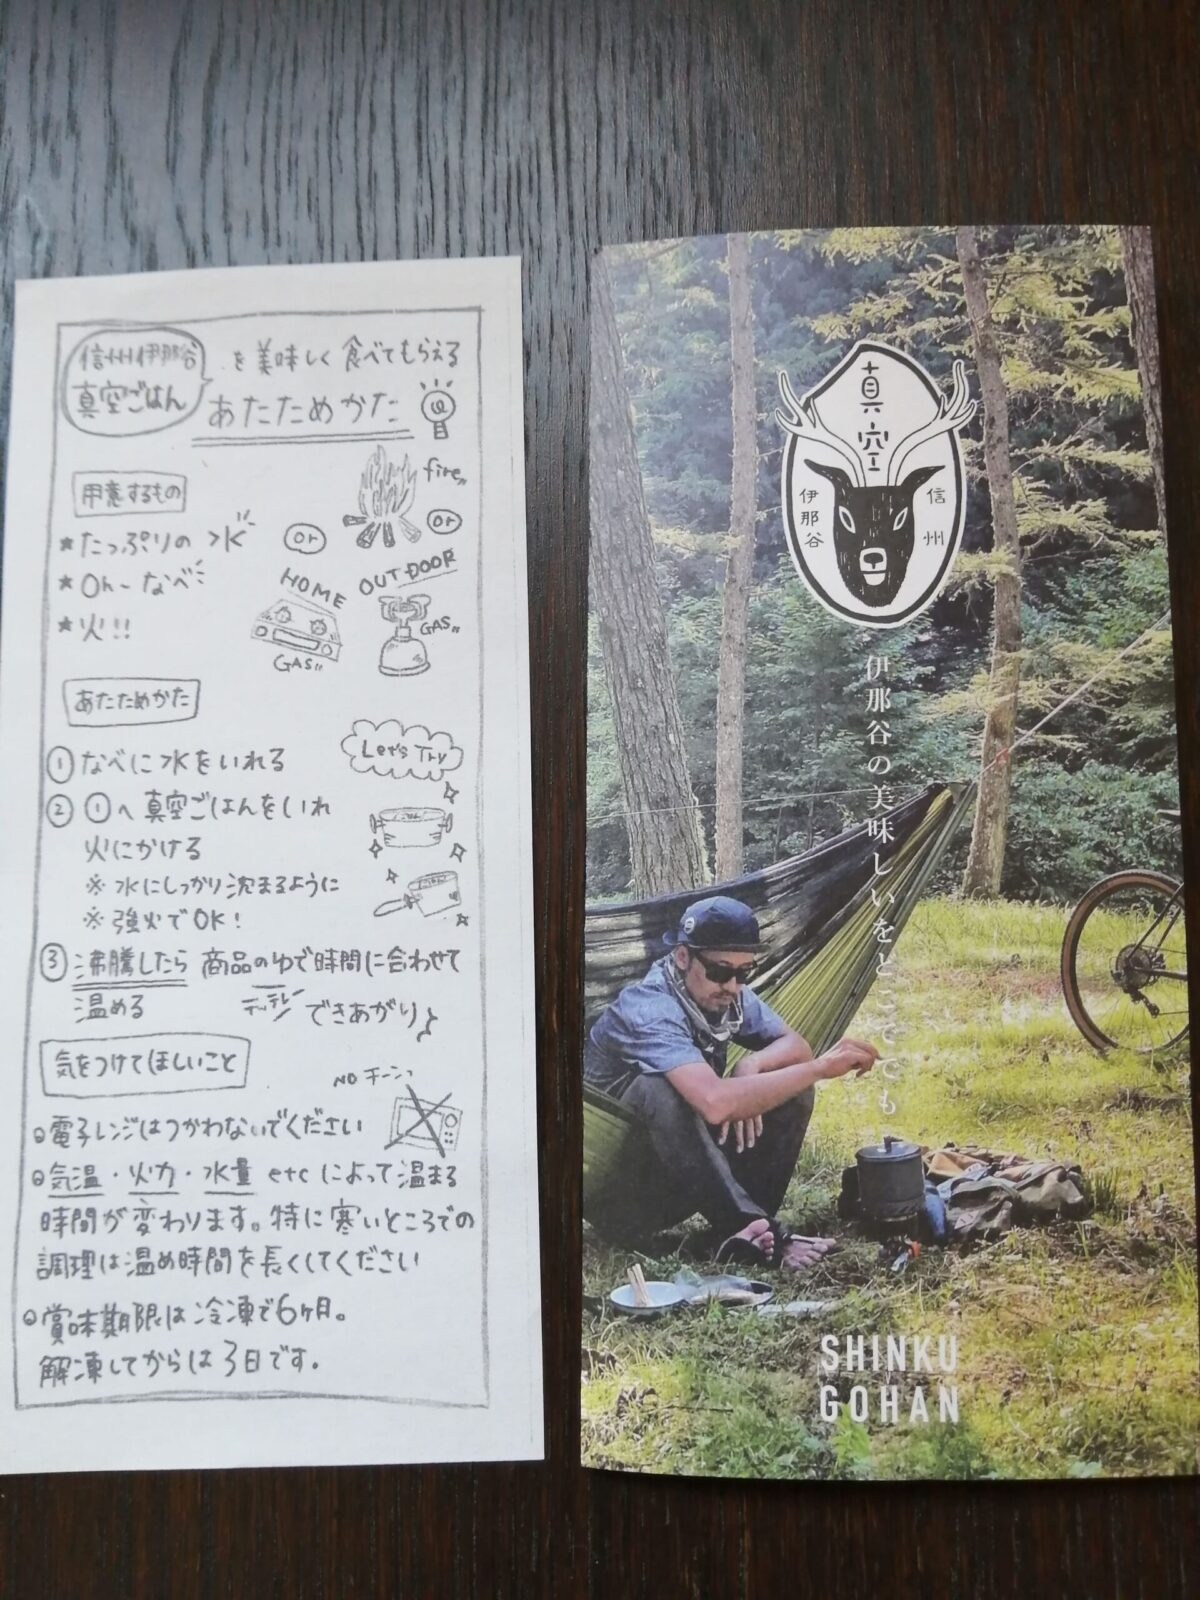 信州伊那谷
真空ごはん
を美味しく食べてもらえる
あたためかた
用意するもの
★たっぷりの水
★Oh～なべ
★火!!
fire
or
or
HOME
GAS
OUTDOOR
GAS
あたためかた
Let's Try
①なべに水をいれる
②①へ真空ごはんをいれ
火にかける
※水にしっかり沈まるように
※強火でOK!
③沸騰したら商品のゆで時間に合わせて
温める
できあがり♪
気をつけてほしいこと
NO チーンっ
電子レンジはつかわないでください
気温・火力・水量etcによって温まる
時間が変わります。特に寒いところでの
調理は温め時間を長くしてください
賞味期限は冷凍で6ヶ月。
解凍してからは3日です。
真空
信州
伊那谷
伊那谷の美味しいをどこででも
SHINKU
GOHAN